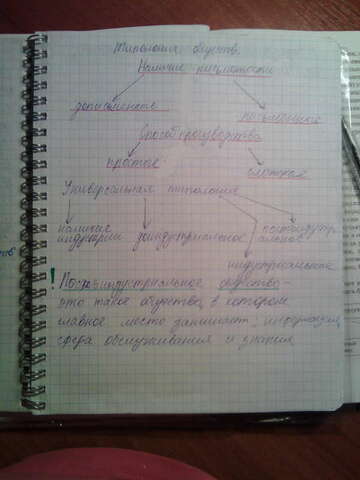 Типология обществ.
Наличие письменности
дописьменное письменное
Способ производства
простое сложное
Универсальная типология
наличие индустрии доиндустриальное постиндустриальное
индустриальное
! Постиндустриальное общество -
это такое общество, в котором
главное место занимает информация,
сфера обслуживания и знания